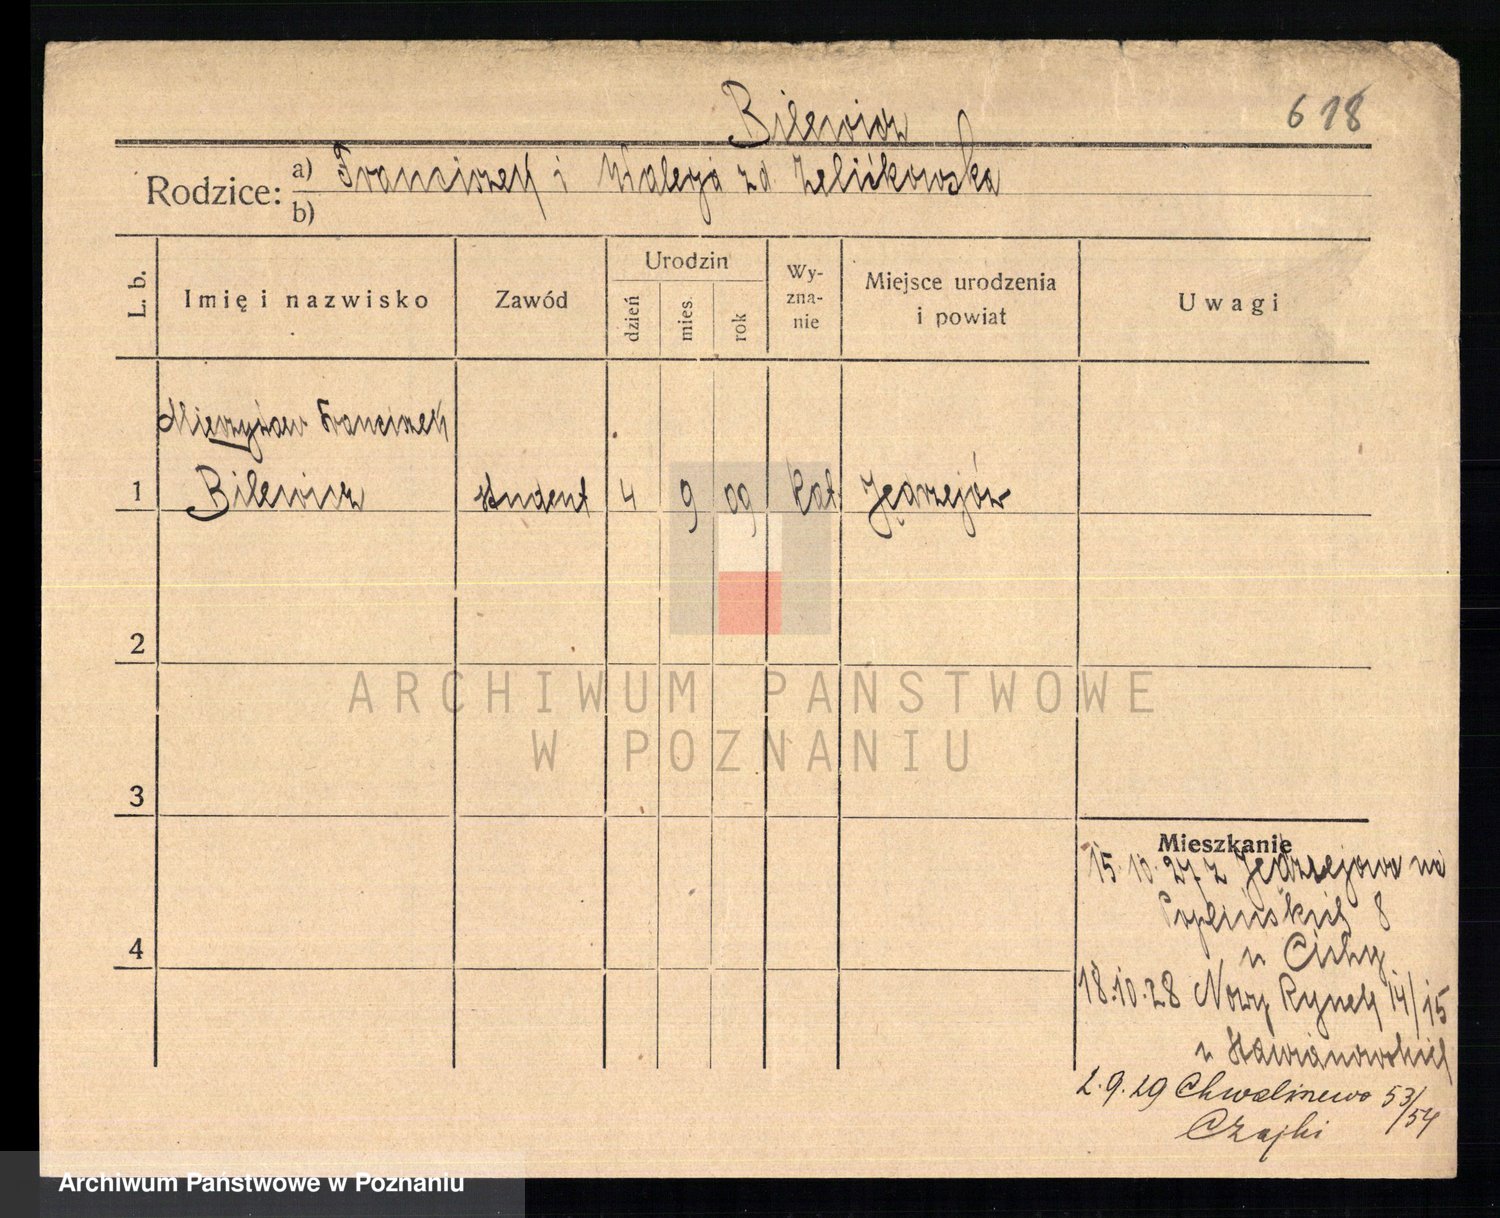 Bilewicz
618
Rodzice: a) Franciszek i Waleyja zd. Zeliskowska
b)
L. b.
Imię i nazwisko
Zawód
Urodzin
dzień
mies.
rok
Wy-
zna-
nie
Miejsce urodzenia
i powiat
Uwagi
Mieczysław Franciszek
1 Bilewicz student 4 9 09 kat. Jędrzejów
2
3
4
Mieszkanie
15.10.27 z Jędrzejowa na
8
u Cichy
18.10.28 Nowy Rynek 14/15
u
2.9.29 Chwaliszewo 53/54
Czajki
ARCHIWUM PAŃSTWOWE
W POZNANIU
Archiwum Państwowe w Poznaniu